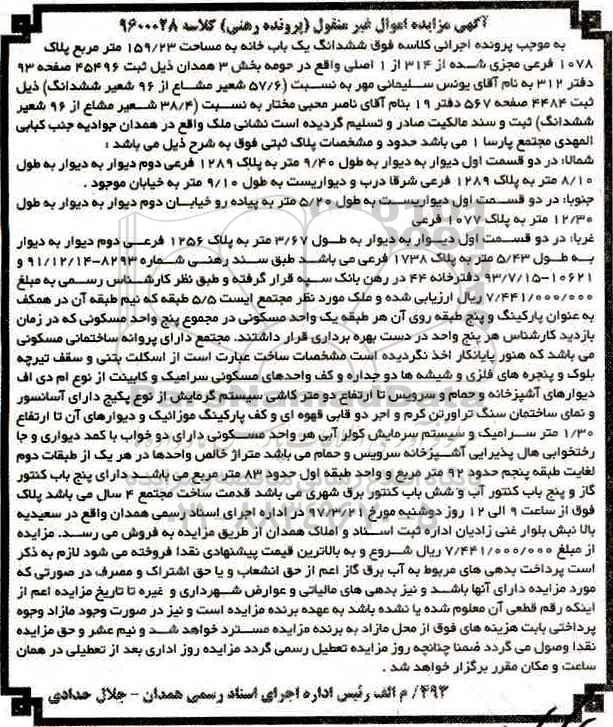 آگهی مزایده اموال غیر منقول (پرونده رهنی) کلاسه ۹۶۰۰۰۲۸
به موجب پرونده اجرائی کلاسه فوق ششدانگ یک باب خانه به مساحت ۱۵۹/۲۳ متر مربع پلاک
۱۰۷۸ فرعی مجزی شده از ۳۱۴ از ۱ اصلی واقع در حومه بخش ۳ همدان ذیل ثبت ۴۵۴۹۶ صفحه ۹۳
دفتر ۳۱۲ به نام آقای یونس سلیمانی مهر به نسبت (۵۷/۶ شعیر مشاع از ۹۶ شعیر ششدانگ) ذیل
ثبت ۴۴۸۴ صفحه ۵۶۷ دفتر ۱۹ بنام آقای ناصر محبی مختار به نسبت (۳۸/۴ شعیر مشاع از ۹۶ شعیر
ششدانگ) ثبت و سند مالکیت صادر و تسلیم گردیده است نشانی ملک واقع در همدان جوادیه جنب کبابی
المهدی مجتمع پارسا ۱ می باشد حدود و مشخصات پلاک ثبتی فوق به شرح ذیل می باشد :
شمالا: در دو قسمت اول دیوار به دیوار به طول ۹/۴۰ متر به پلاک ۱۲۸۹ فرعی دوم دیوار به دیوار به طول
۸/۱۰ متر به پلاک ۱۲۸۹ فرعی شرقا درب و دیواریست به طول ۹/۱۰ متر به خیابان موجود .
جنوبا: در دو قسمت اول دیواریست به طول ۵/۲۰ متر به پیاده رو خیابان دوم دیوار به دیوار به طول
۱۲/۳۰ متر به پلاک ۱۰۷۷ فرعی
غربا: در دو قسمت اول دیوار به دیوار به طول ۳/۶۷ متر به پلاک ۱۲۵۶ فرعی دوم دیوار به دیوار
به طول ۵/۴۳ متر به پلاک ۱۷۳۸ فرعی می باشد طبق سند رهنی شماره ۸۲۹۳-۹۱/۱۲/۱۴ و
۱۰۶۲۱-۹۳/۷/۱۵ دفترخانه ۴۴ در رهن بانک سپه قرار گرفته و طبق نظر کارشناس رسمی به مبلغ
۷/۴۴۱/۰۰۰/۰۰۰ ریال ارزیابی شده و ملک مورد نظر مجتمع ایست ۵/۵ طبقه که نیم طبقه آن در همکف
به عنوان پارکینگ و پنج طبقه روی آن هر طبقه یک واحد مسکونی در مجموع پنج واحد مسکونی که در زمان
بازدید کارشناس هر پنج واحد در دست بهره برداری قرار داشتند. مجتمع دارای پروانه ساختمانی مسکونی
می باشد که هنور پایانکار اخذ نگردیده است مشخصات ساخت عبارت است از اسکلت بتنی و سقف تیرچه
بلوک و پنجره های فلزی و شیشه ها دو جداره و کف واحدهای مسکونی سرامیک و کابینت از نوع ام دی اف
دیوارهای آشپزخانه و حمام و سرویس تا ارتفاع دو متر کاشی سیستم گرمایش از نوع پکیج دارای آسانسور
و نمای ساختمان سنگ تراورتن کرم و اجر دو قابی قهوه ای و کف پارکینگ موزائیک و دیوارهای آن تا ارتفاع
۱/۳۰ متر سرامیک و سیستم سرمایش کولر آبی هر واحد مسکونی دارای دو خواب با کمد دیواری و جا
رختخوابی هال پذیرایی آشپزخانه سرویس و حمام می باشد متراژ خالص واحدها در هر یک از طبقات دوم
لغایت طبقه پنجم حدود ۹۲ متر مربع و واحد طبقه اول حدود ۸۳ متر مربع می باشد دارای پنج باب کنتور
گاز و پنج باب کنتور آب و شش باب کنتور برق شهری می باشد قدمت ساخت مجتمع ۴ سال می باشد پلاک
فوق از ساعت ۹ الی ۱۲ روز دوشنبه مورخ ۹۷/۳/۲۱ در اداره اجرای اسناد رسمی همدان واقع در سعیدیه
بالا نبش بلوار غنی زادیان اداره ثبت اسناد و املاک همدان از طریق مزایده به فروش می رسد. مزایده
از مبلغ ۷/۴۴۱/۰۰۰/۰۰۰ ریال شروع و به بالاترین قیمت پیشنهادی نقدا فروخته می شود لازم به ذکر
است پرداخت بدهی های مربوط به آب برق گاز اعم از حق انشعاب و یا حق اشتراک و مصرف در صورتی که
مورد مزایده دارای آنها باشد و نیز بدهی های مالیاتی و عوارض شهرداری و غیره تا تاریخ مزایده اعم از
اینکه رقم قطعی آن معلوم شده یا نشده باشد به عهده برنده مزایده است و نیز در صورت وجود مازاد وجوه
پرداختی بابت هزینه های فوق از محل مازاد به برنده مزایده مسترد خواهد شد و نیم عشر و حق مزایده
نقدا وصول می گردد ضمنا چنانچه روز مزایده تعطیل رسمی گردد مزایده روز اداری بعد از تعطیلی در همان
ساعت و مکان مقرر برگزار خواهد شد .
۴۹۳/ م الف رئیس اداره اجرای اسناد رسمی همدان - جلال حدادی